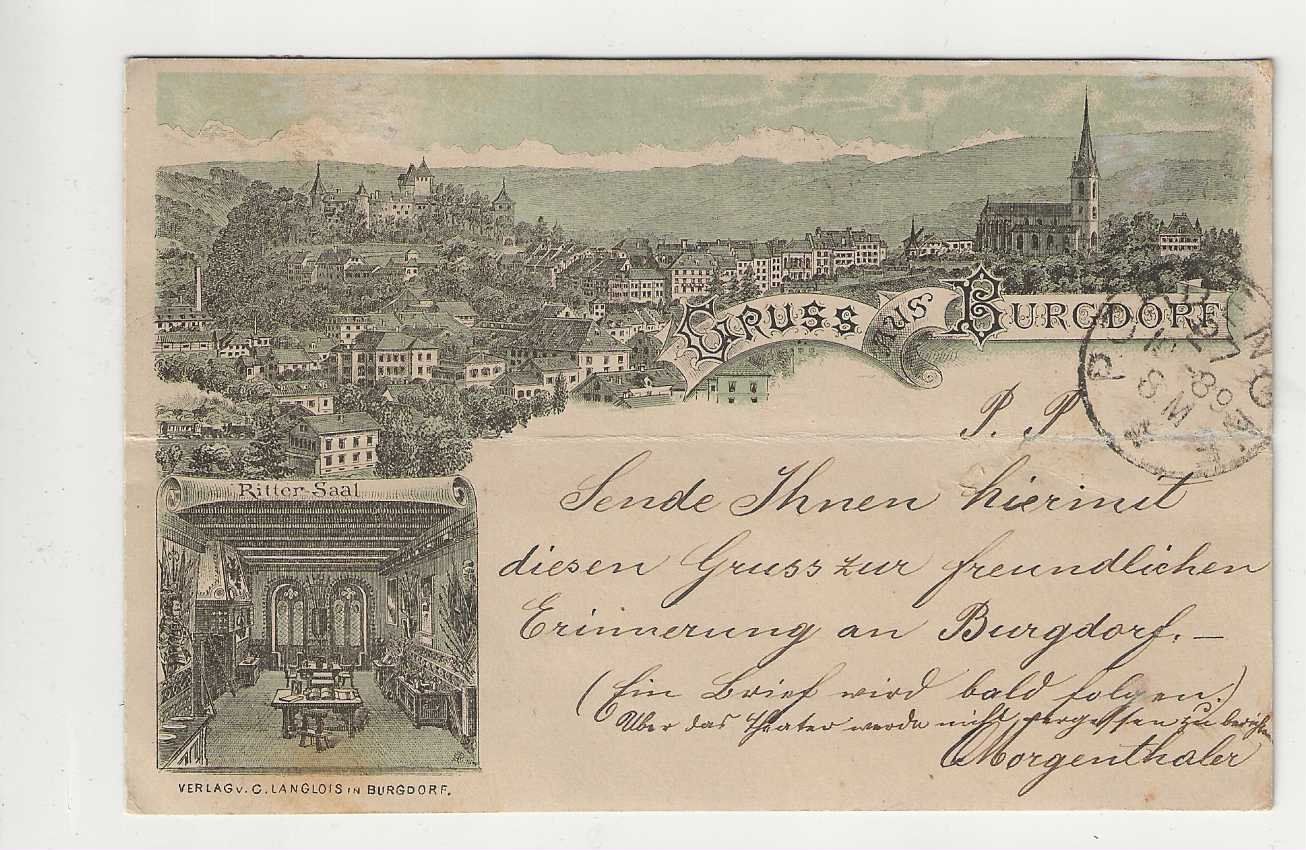 GRUSS AUS BURGDORF
P. P
Sende Ihnen hiermit
diesen Gruss zur freundlichen
Erinnerung an Burgdorf. —
(Ein Brief wird bald folgen.)
Über das Theater werde nicht vergessen zu berichten
Morgenthaler
Ritter-Saal
VERLAG v. C. LANGLOIS IN BURGDORF.